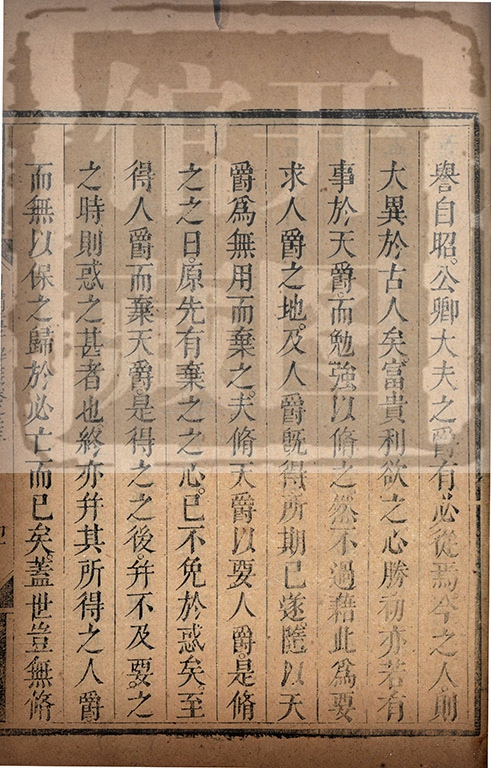 譽自昭。公卿大夫之爵有必從焉今之人則
大異於古人矣。富貴利欲之心勝初亦若有
事於天爵。而勉強以脩之然不過藉此為要
求人爵之地。及人爵既得所期已遂隨以天
爵為無用而棄之。夫脩天爵以要人爵。是脩
之之日。原先有棄之之心。已不免於惑矣。至
得人爵而棄天爵是得之之後。并不及要之
之時則惑之甚者也。終亦并其所得之人爵
而無以保之歸於必亡而已矣。蓋世豈無脩